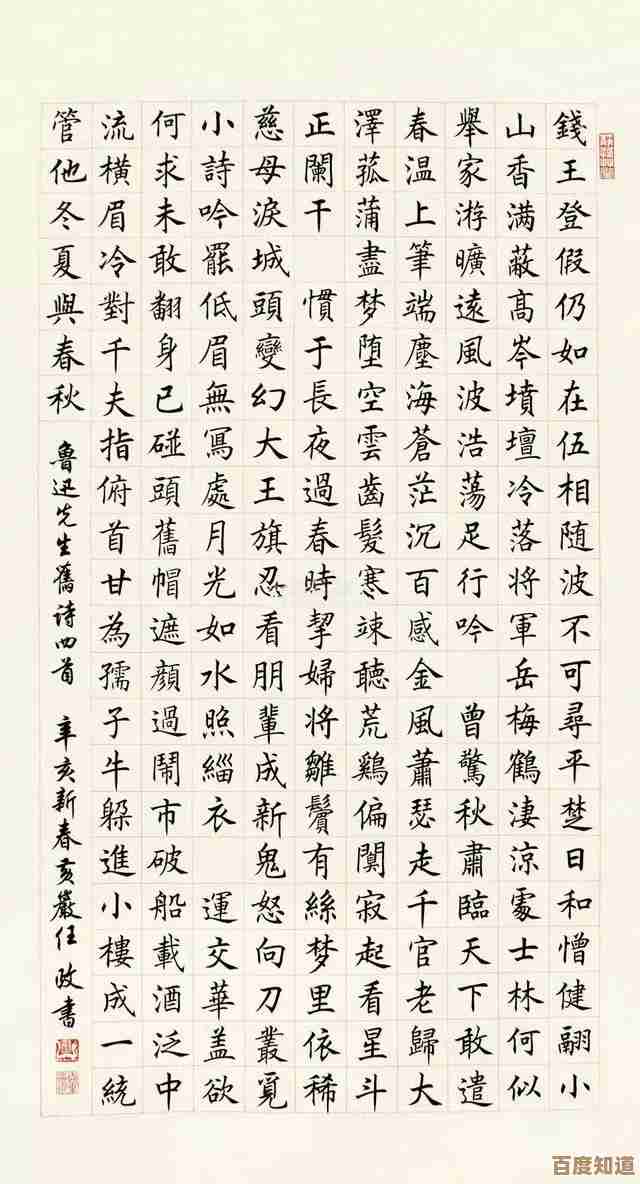 錢王登假仍如在伍相随波不可尋平楚日和憎健翮小
山香满蔽高岑墳壇冷落將軍岳梅鶴淒涼處士林何似
舉家游曠遠風波浩蕩足行吟 曾驚秋肅臨天下敢遣
春温上筆端塵海蒼茫沉百感金風蕭瑟走千官老歸大
澤菰蒲盡梦堕空雲齒髮寒竦聽荒鷄偏闃寂起看星斗
正闌干 慣于長夜過春時挈婦將雛鬢有絲梦里依稀
慈母淚城頭變幻大王旗忍看朋輩成新鬼怒向刀叢覓
小詩吟罷低眉無寫處月光如水照緇衣 運交華盖欲
何求未敢翻身已碰頭舊帽遮顏過鬧市破船載酒泛中
流橫眉冷對千夫指俯首甘為孺子牛躲進小樓成一統
管他冬夏與春秋
魯迅先生舊诗四首 辛亥新春黄巖任政書
百度知道